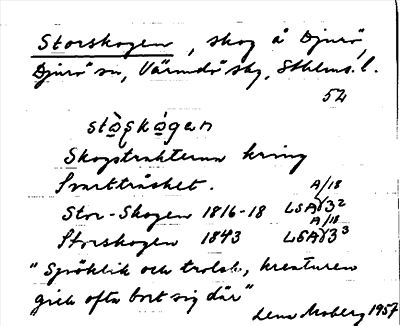 Storskogen, skog å Djurö,
Djurö sn, Värmdö skg, Sthlms. l.
52
stòṣkógan
Skogstrakterna kring
Svartträsket.
A/18
Stor-Skogen 1816-18 LSA γ3²
A/18
Storskogen 1843 LSA γ3³
"Spöklik och trolsk, kreaturen
gick ofta bort sig där"
Lena Moberg 1957